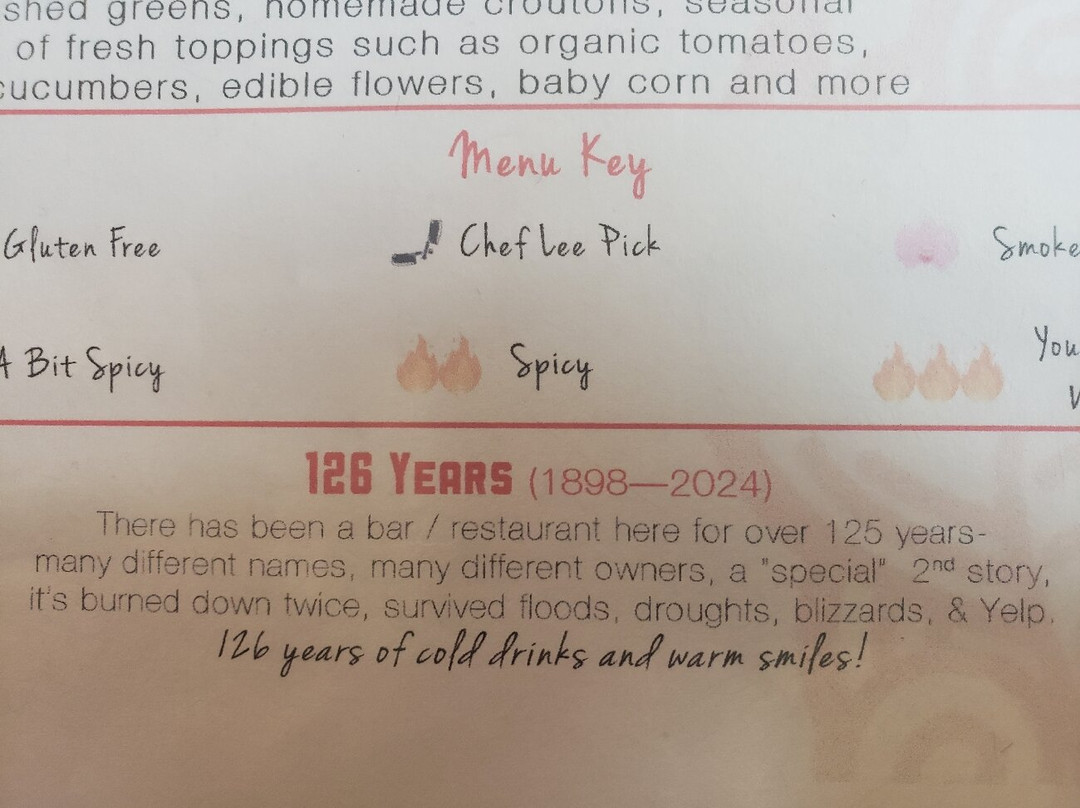 shed greens, homemade croutons, seasonal
of fresh toppings such as organic tomatoes,
cucumbers, edible flowers, baby corn and more
Menu Key
Gluten Free
Chef Lee Pick
Smoke
A Bit Spicy
Spicy
You
126 YEARS (1898—2024)
There has been a bar / restaurant here for over 125 years-
many different names, many different owners, a "special" 2nd story,
it's burned down twice, survived floods, droughts, blizzards, & Yelp.
126 years of cold drinks and warm smiles!